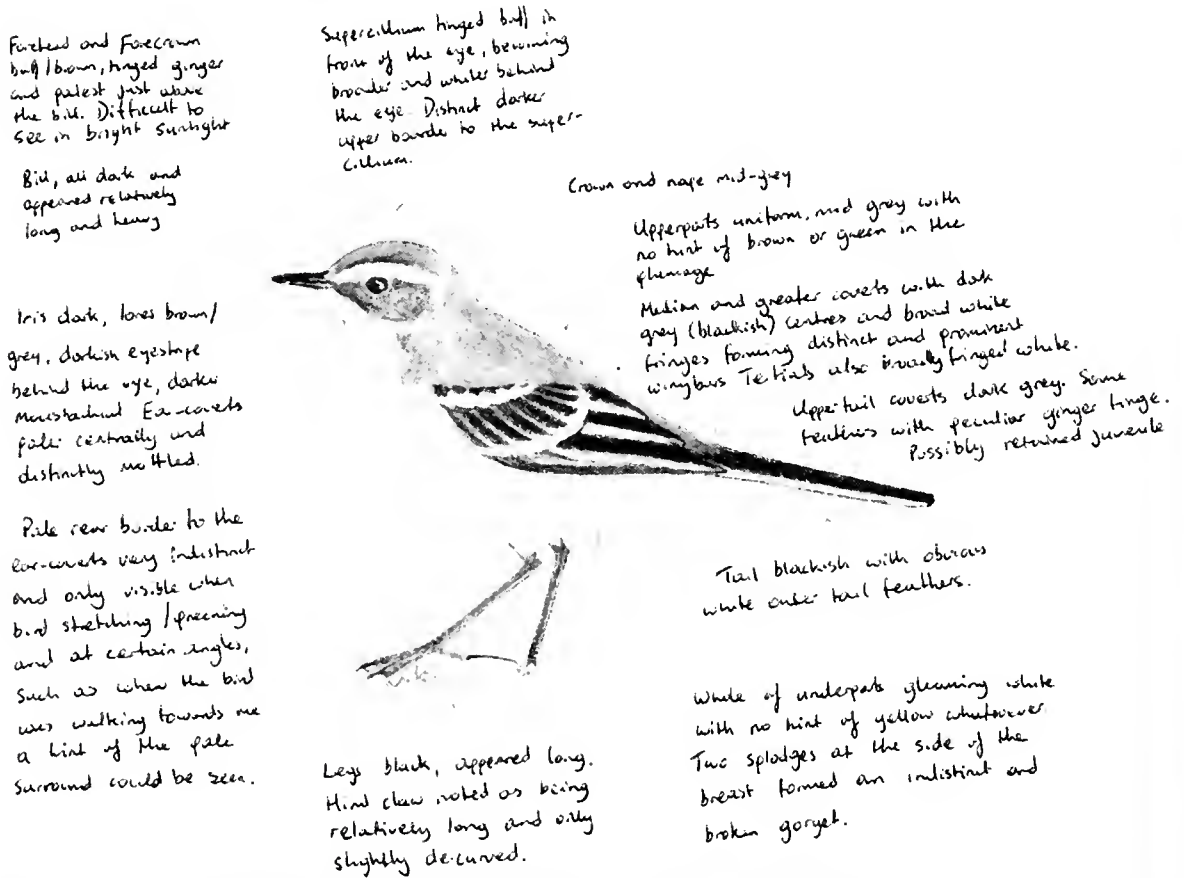 Forehead and Forecrown
buff/brown, tinged ginger
and palest just above
the bill. Difficult to
see in bright sunlight
Bill, all dark and
appeared relatively
long and heavy
Iris dark, lores brown/
grey, darkish eyestripe
behind the eye, darker
moustachial Ear-coverts
paler centrally and
distinctly mottled.
Pale rear border to the
ear-coverts very indistinct
and only visible when
bird stretching/preening
and at certain angles,
such as when the bird
was walking towards me
a hint of the pale
surround could be seen.
Supercilium tinged buff in
front of the eye, becoming
broader and whiter behind
the eye. Distinct darker
upper border to the super-
cilium.
Crown and nape mid-grey
Upperparts uniform, mid grey with
no hint of brown or green in the
plumage
Median and greater coverts with dark
grey (blackish) centres and broad white
fringes forming distinct and prominent
wingbars Tertials also broadly fringed white.
Uppertail coverts dark grey. Some
feathers with peculiar ginger tinge.
Possibly retained juvenile
Tail blackish with obvious
white outer tail feathers.
Whole of underparts gleaming white
with no hint of yellow whatsoever
Two splodges at the side of the
breast formed an indistinct and
broken gorget.
Legs black, appeared long.
Hind claw noted as being
relatively long and only
slightly decurved.